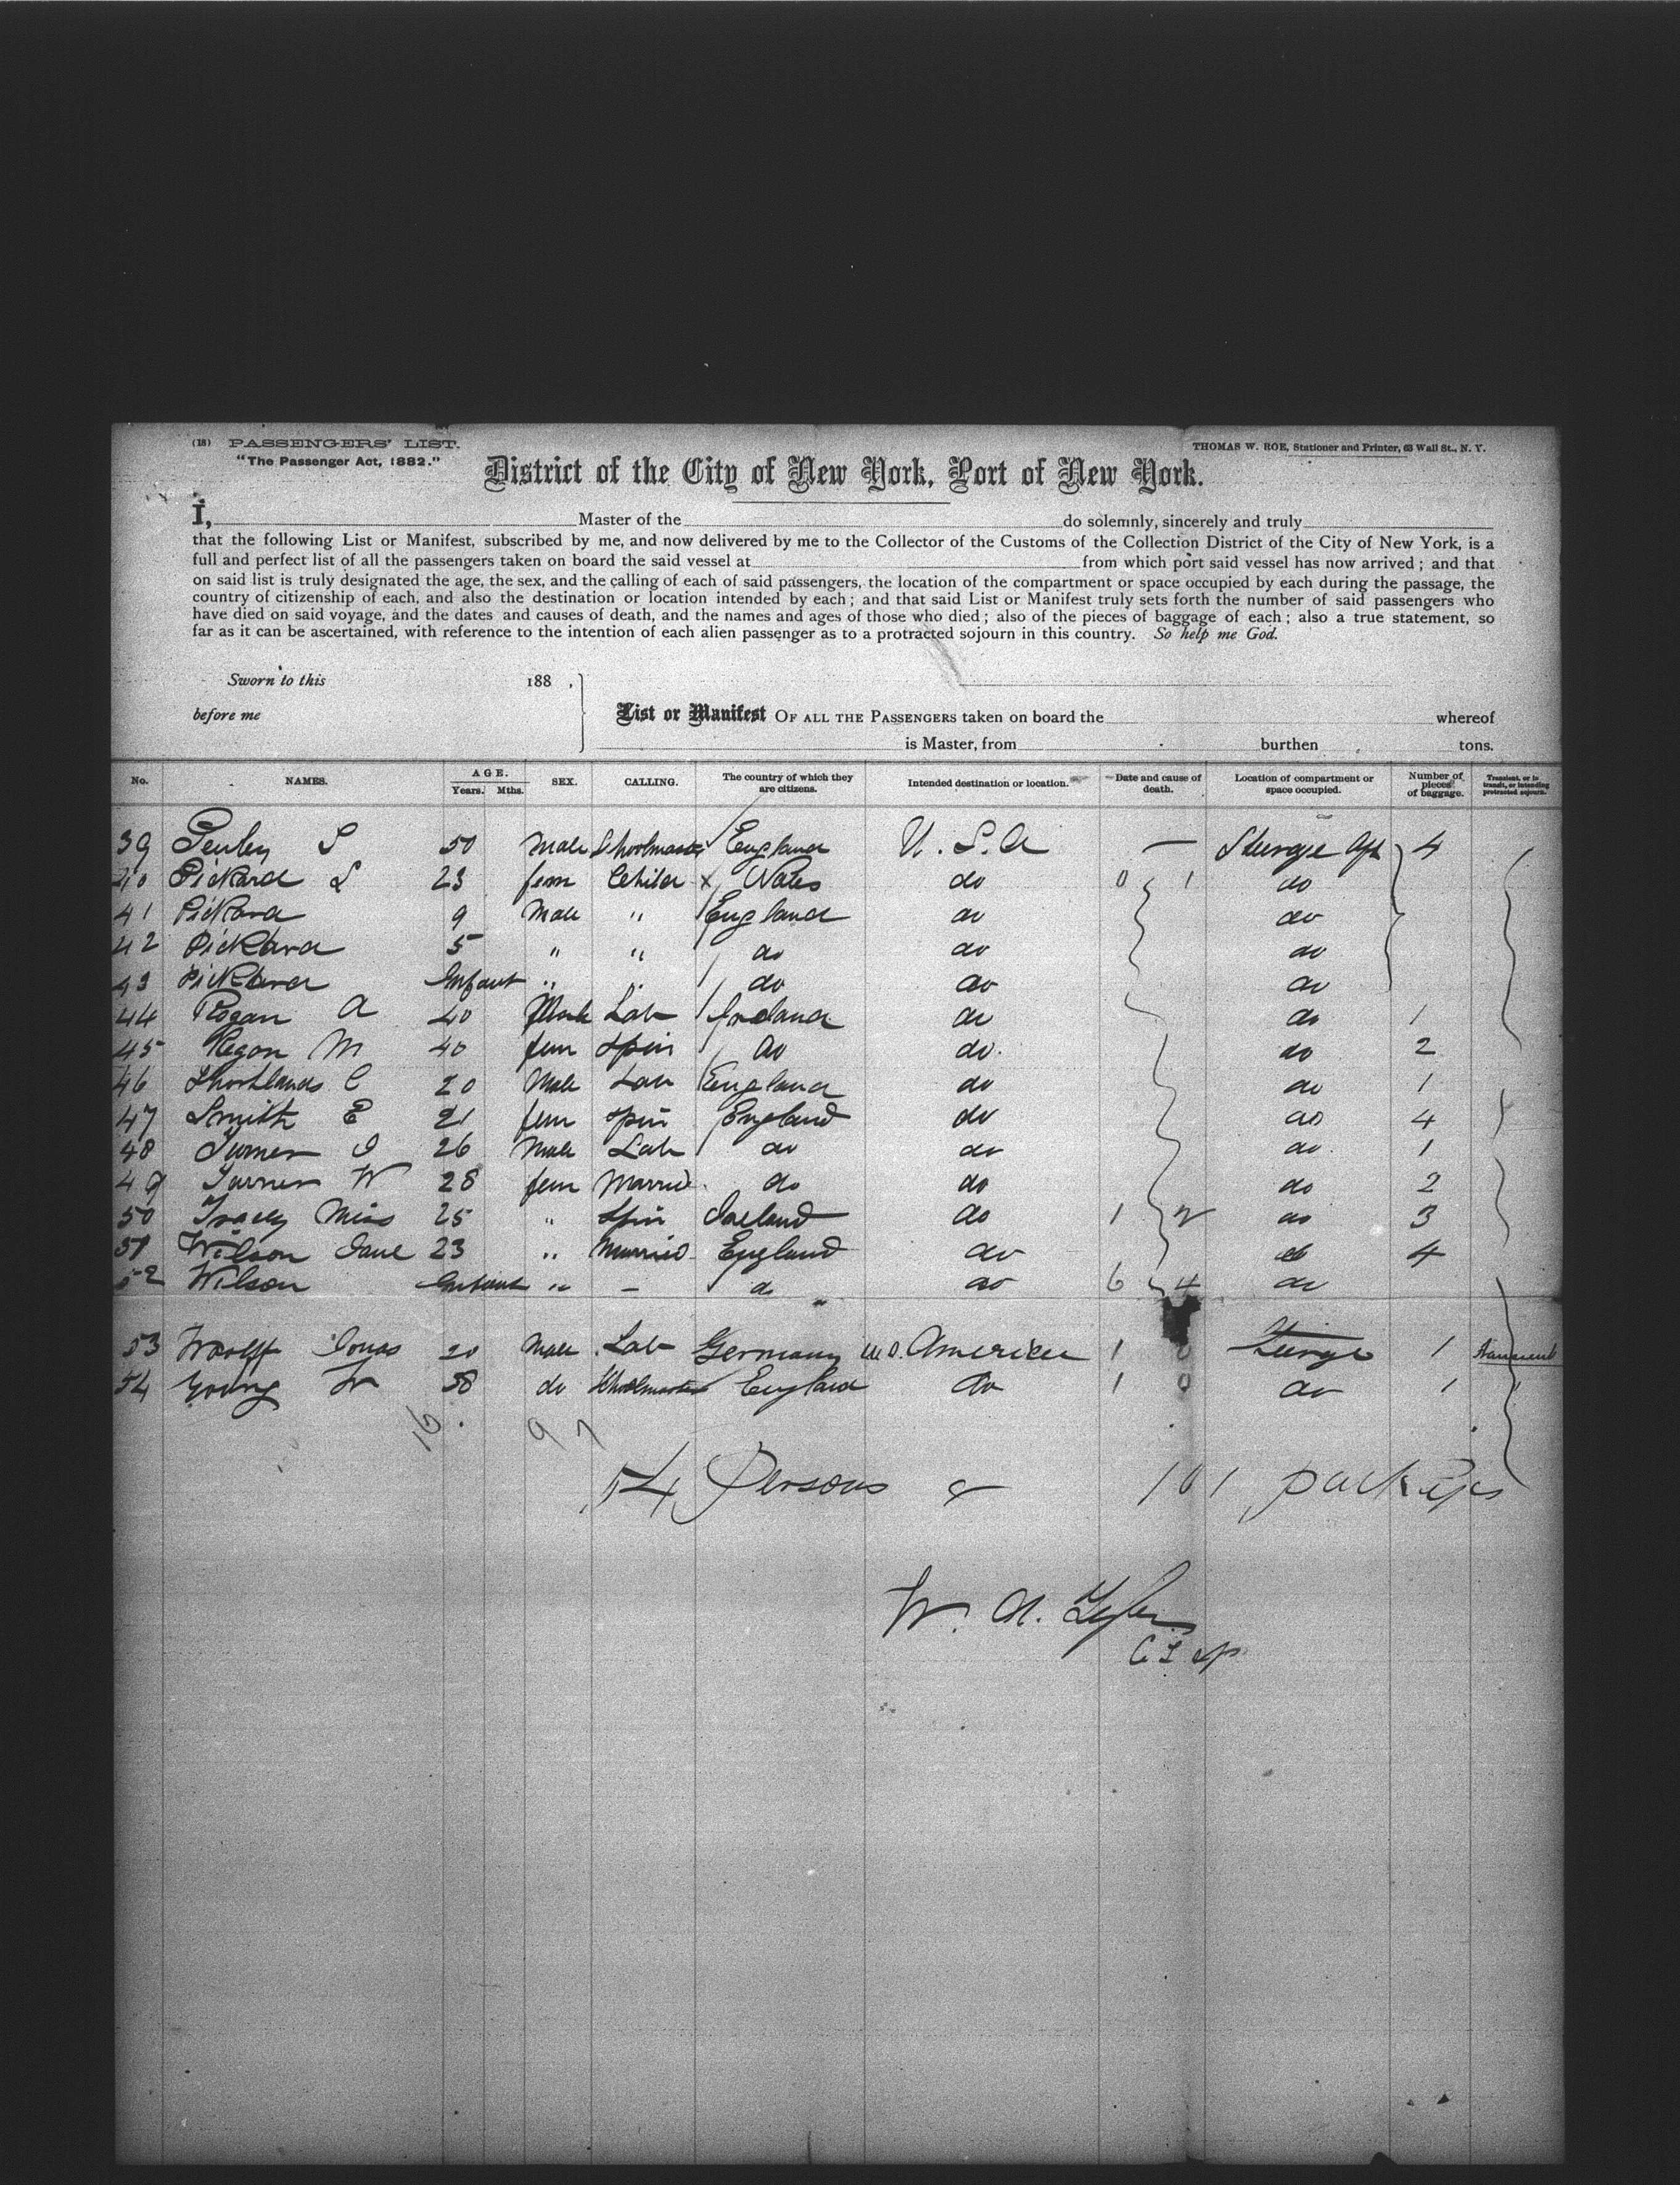 (18) PASSENGERS' LIST. THOMAS W. ROE, Stationer and Printer, 63 Wall St., N. Y.
"The Passenger Act, 1882."
District of the City of New York, Port of New York.
I, Master of the do solemnly, sincerely and truly
that the following List or Manifest, subscribed by me, and now delivered by me to the Collector of the Customs of the Collection District of the City of New York, is a
full and perfect list of all the passengers taken on board the said vessel at from which port said vessel has now arrived; and that
on said list is truly designated the age, the sex, and the calling of each of said passengers, the location of the compartment or space occupied by each during the passage, the
country of citizenship of each, and also the destination or location intended by each; and that said List or Manifest truly sets forth the number of said passengers who
have died on said voyage, and the dates and causes of death, and the names and ages of those who died; also of the pieces of baggage of each; also a true statement, so
far as it can be ascertained, with reference to the intention of each alien passenger as to a protracted sojourn in this country. So help me God.
Sworn to this 188 ,
before me
List or Manifest OF ALL THE PASSENGERS taken on board the whereof
is Master, from burthen tons.
No. NAMES. AGE. Years. Mths. SEX. CALLING. The country of which they are citizens. Intended destination or location. Date and cause of death. Location of compartment or space occupied. Number of pieces of baggage. Transient, or in transit, or intending protracted sojourn.
39 50 Male England U.S.A — 4
40 Pickard L 23 fem Child x Wales do 0 1 do
41 Pickard 9 Male " England do do
42 Pickard 5 " " do do do
43 Pickard Infant " " do do do
44 Rogan A 40 Lab Ireland do do 1
45 Regan M 40 fem Spin do do. do 2
46 Shortlands C 20 Male Lab England do do 1
47 Smith E 21 fem Spin England do do 4
48 Turner J 26 Male Lab do do do 1
49 Turner W 28 fem Married do do do 2
50 Tracey Miss 25 " Spin Ireland do 1 2 do 3
51 Wilson Jane 23 " Married England do do 4
52 Wilson Infant " — do do 6 4 do
53 Woolff Jonas 20 Male Lab Germany America 1 0 1 Transient
54 Young W 58 do Schoolmaster England do 1 0 do 1
16 9 7
54 Persons & 101 packages
W.